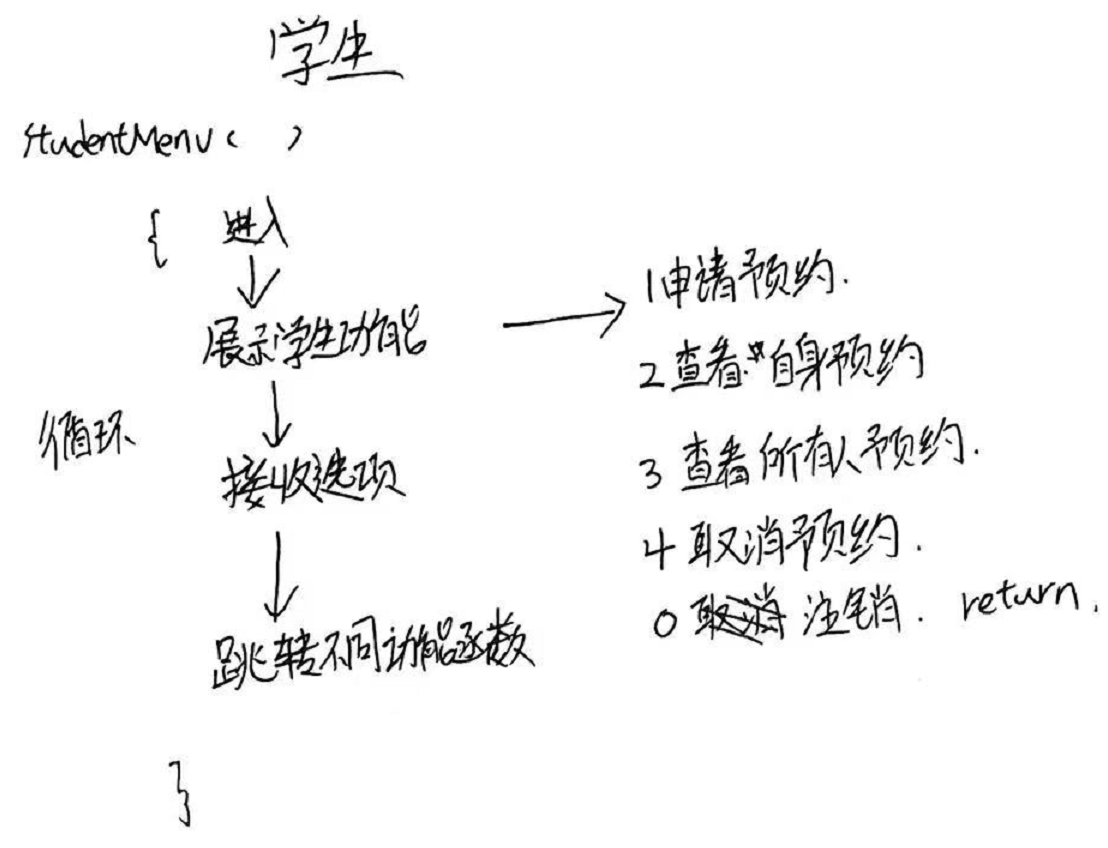 学生
studentMenu( )
{ 进入
展示学生功能
循环
接收选项
跳转不同功能函数
}
1申请预约.
2查看自身预约
3查看所有人预约.
4取消预约.
0取消 注销. return.